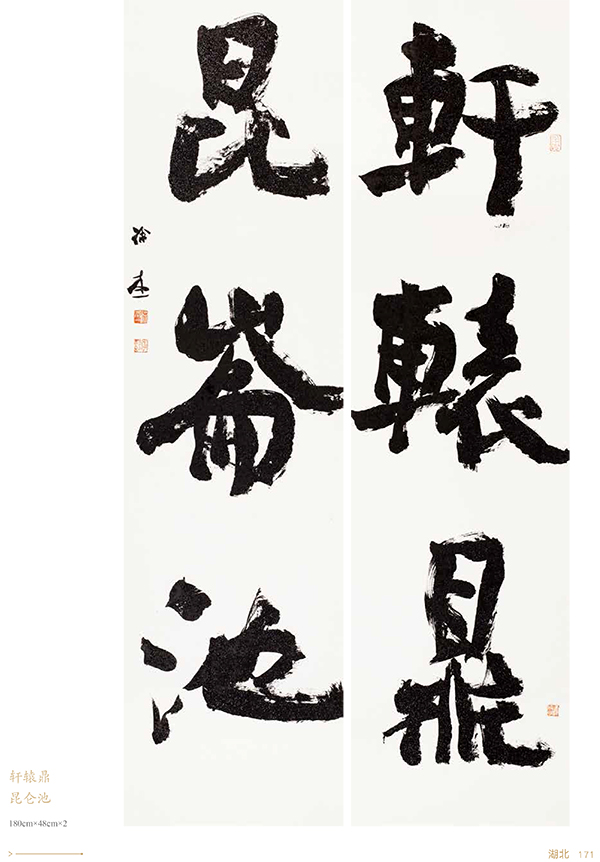 軒轅鼎
昆崙池
徐本一
轩辕鼎
昆仑池
180cm×48cm×2
湖北 171